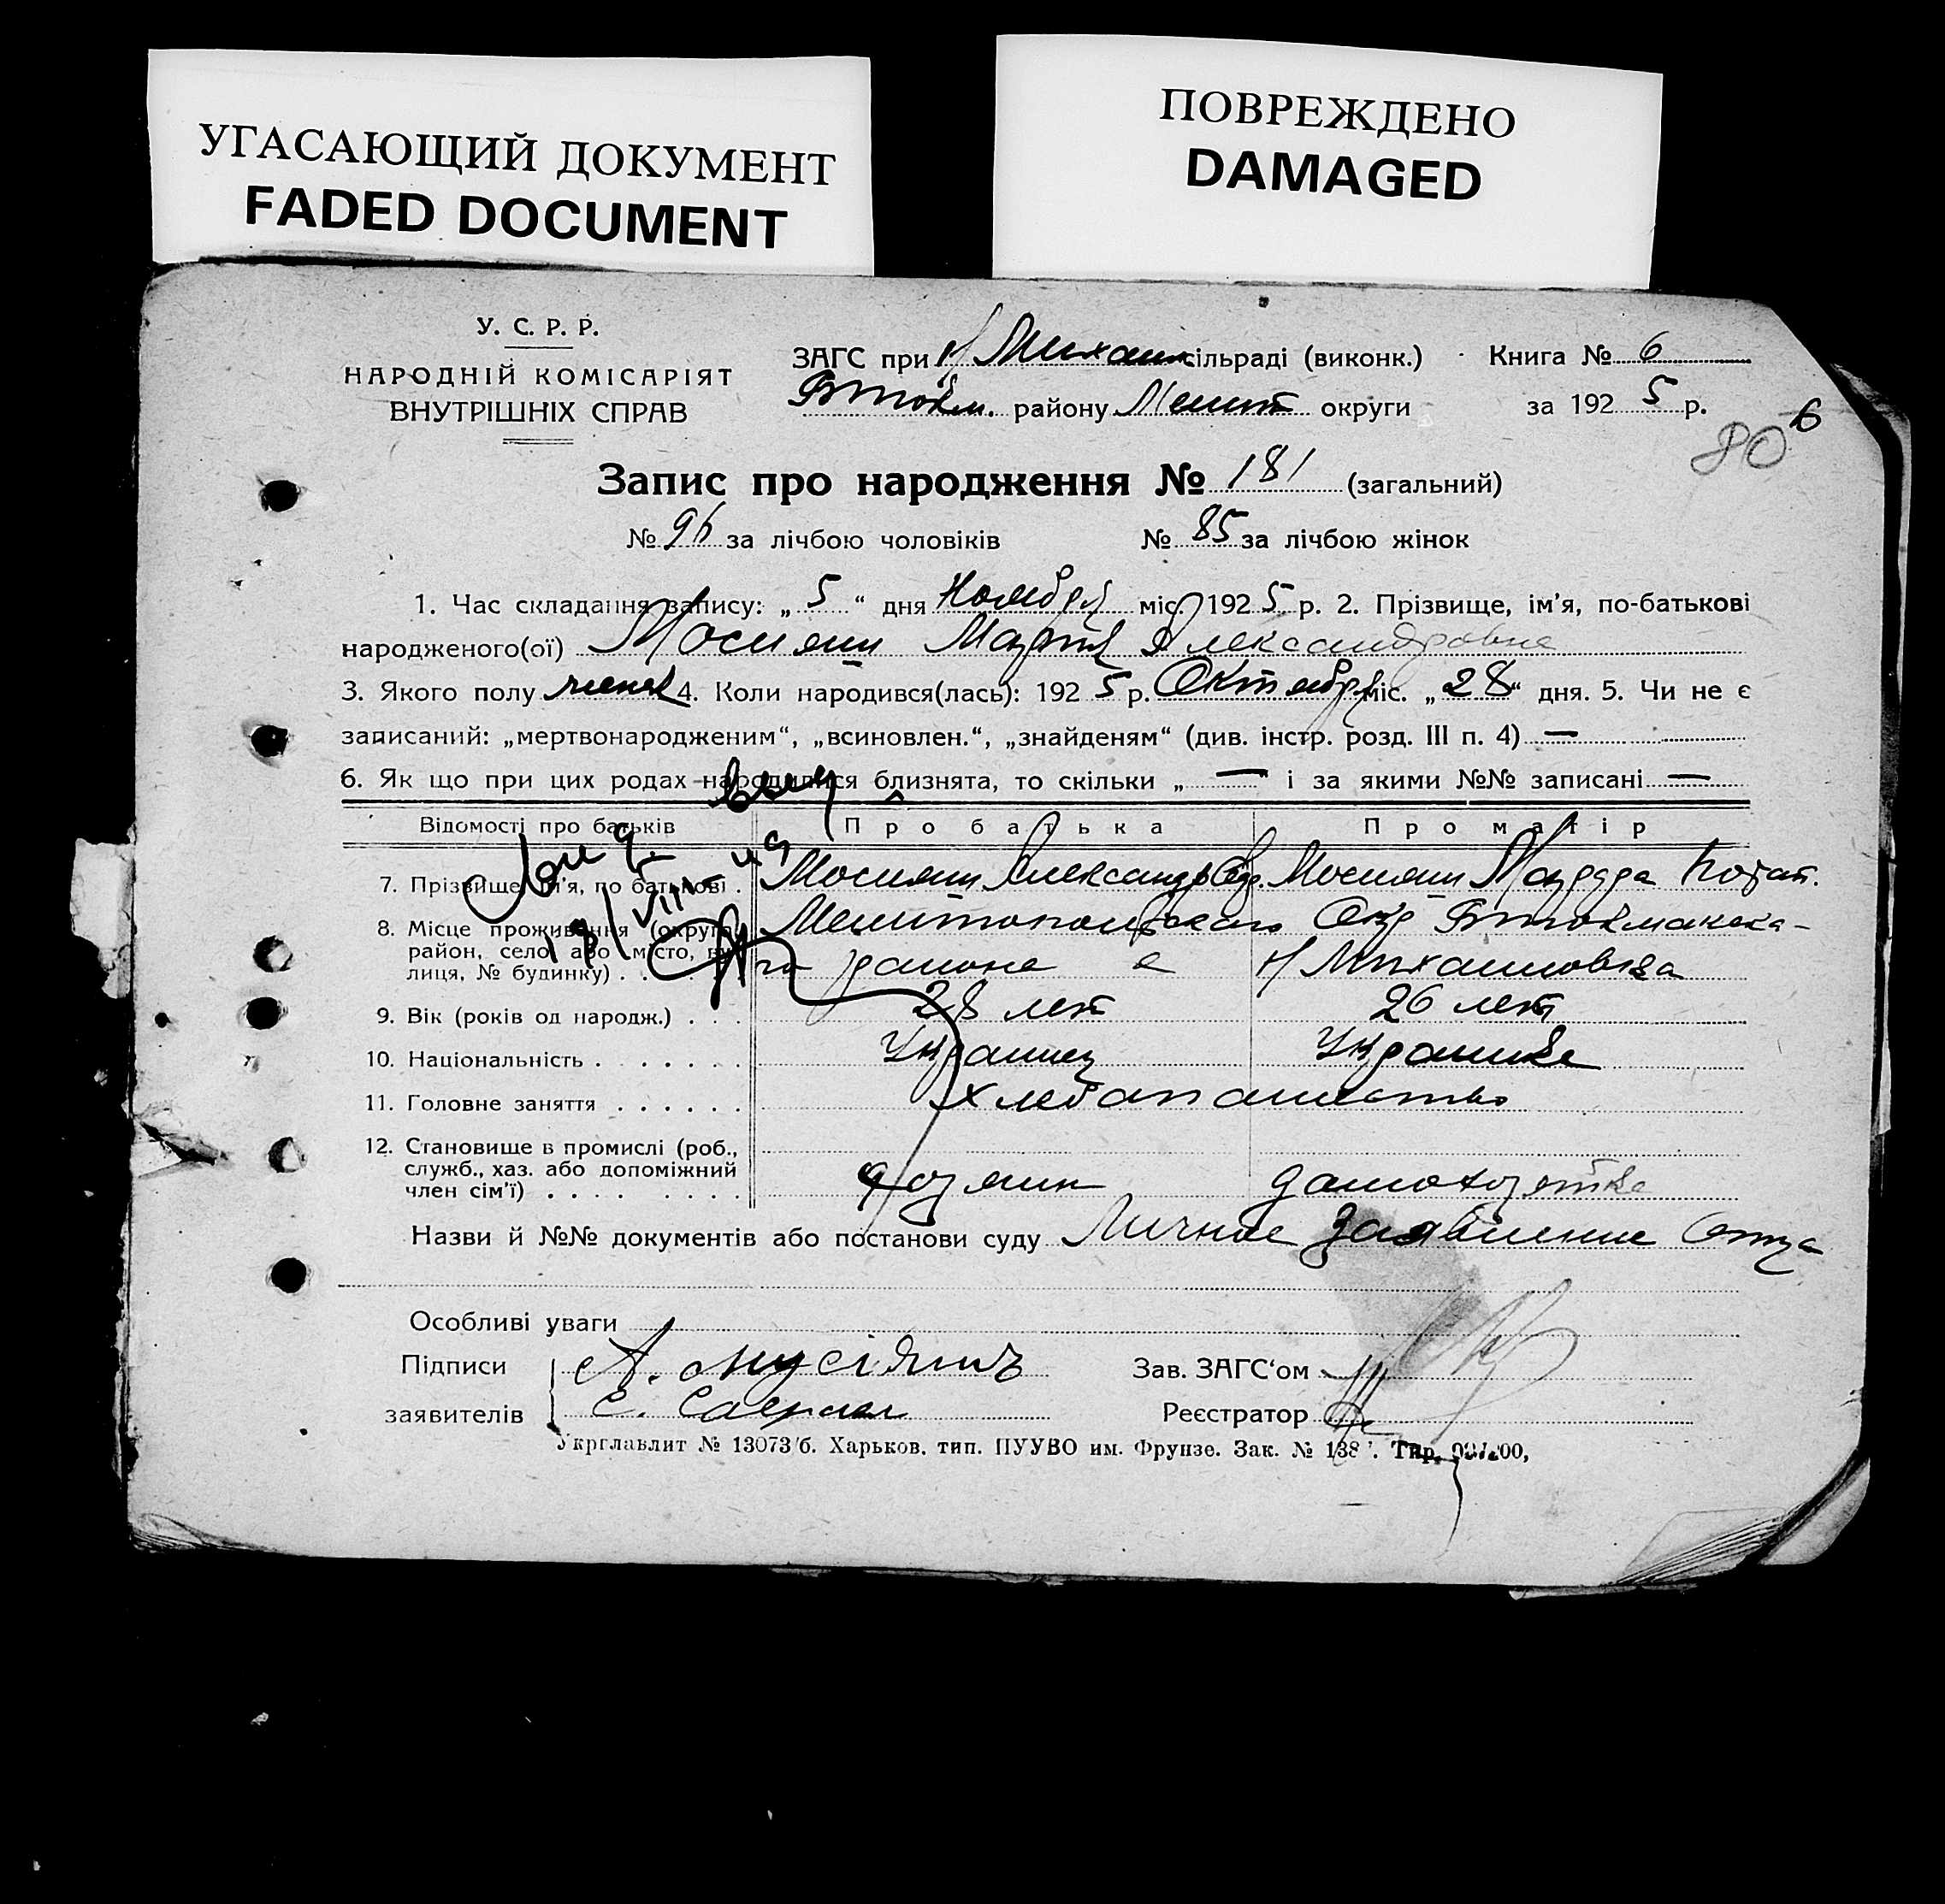 УГАСАЮЩИЙ ДОКУМЕНТ
FADED DOCUMENT
ПОВРЕЖДЕНО
DAMAGED
У. С. Р. Р.
НАРОДНІЙ КОМІСАРІЯТ
ВНУТРІШНІХ СПРАВ
ЗАГС при Н Михаил сільраді (виконк.) Книга № 6
Б Токм. району Мелит округи за 192 5 р.
6
80
Запис про народження № 181 (загальний)
№ 96 за лічбою чоловіків № 85 за лічбою жінок
1. Час складання запису: „ 5 “ дня Ноября міс. 192 5 р. 2. Прізвище, ім'я, по-батькові
народженого(ої) Мосияш Мария Александровна
3. Якого полу женск 4. Коли народився(лась): 192 5 р. Октября міс. „ 28 “ дня. 5. Чи не є
записаний: „мертвонародженим“, „всиновлен.“, „знайденям“ (див. інстр. розд. III п. 4) —
6. Як що при цих родах народилися близнята, то скільки „ — “ і за якими №№ записані —
Відомості про батьків Про батька Про матір
7. Прізвище, ім'я, по батькові . Мосияш Александр Мосияш
8. Місце проживання (округа, Мелитопольского Окр Б Токмакска-
район, село або місто, ву-
лиця, № будинку) . . го района с Н Михайловка
9. Вік (років од народж.) . . . 28 лет 26 лет
10. Національність . . . . . . Украинец Украинка
11. Головне заняття . . . . . . Хлебапашество
12. Становище в промислі (роб.,
служб., хаз. або допоміжний
член сім'ї) . . . . . . . . хозяин домохозяйка
Назви й №№ документів або постанови суду Личное заявление Отца
Особливі уваги
Підписи А. Мусіяшъ Зав. ЗАГС‘ом
заявителів С. Реєстратор
Укрглавлит № 13073/б. Харьков, тип. ПУУВО им. Фрунзе. Зак. №